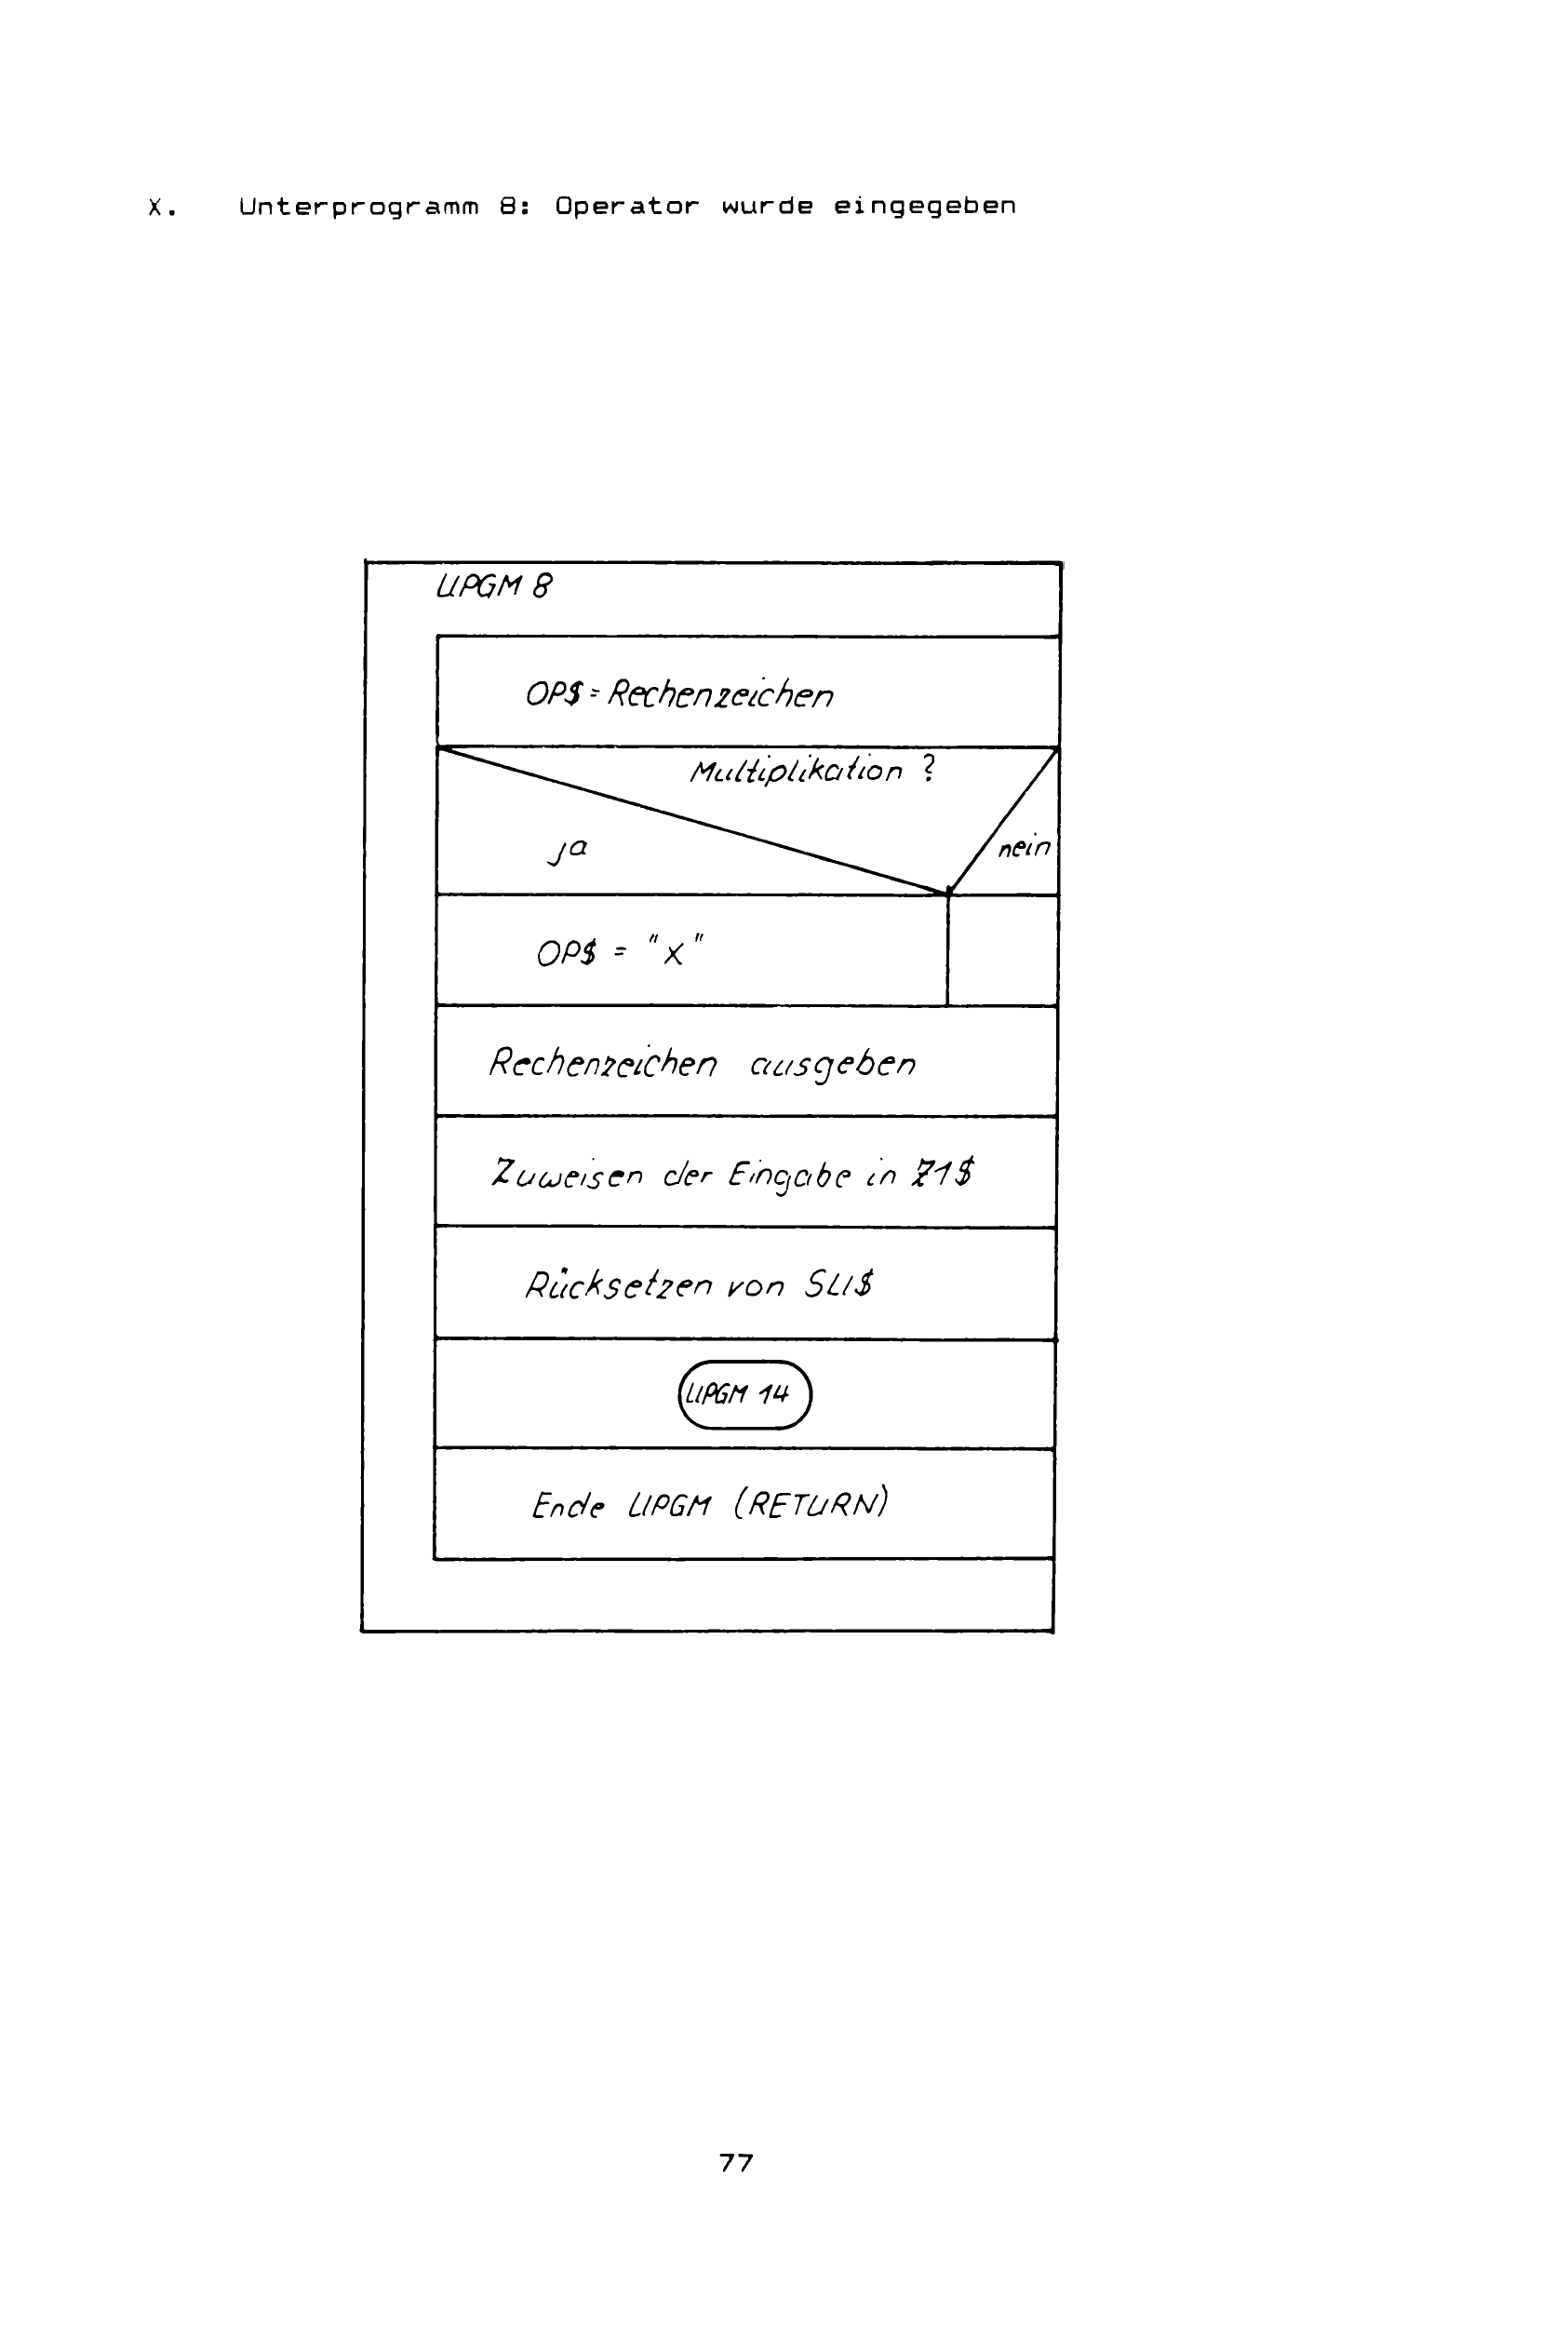 X. Unterprogramm 8: Operator wurde eingegeben
UPGM 8
OP$ = Rechenzeichen
Multiplikation ?
ja
nein
OP$ = "x"
Rechenzeichen ausgeben
Zuweisen der Eingabe in Z1$
Rücksetzen von SU$
UPGM 14
Ende UPGM (RETURN)
77